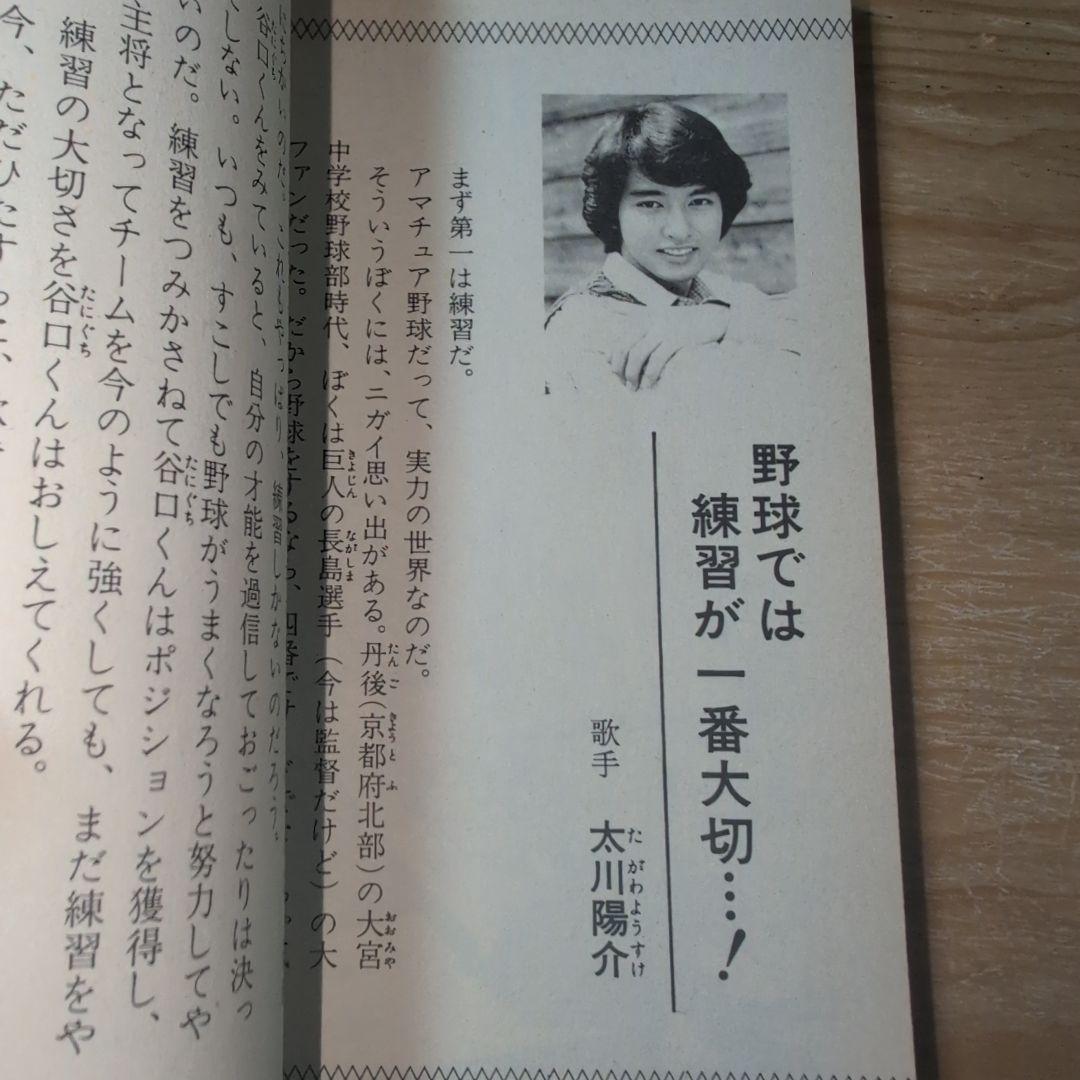 野球では
練習が一番大切…！
歌手　太川陽介
たがわようすけ
まず第一は練習だ。
アマチュア野球だって、実力の世界なのだ。
そういうぼくには、ニガイ思い出がある。丹後(京都府北部)の大宮
たんご
きょうとふ
おおみや
中学校野球部時代、ぼくは巨人の長島選手（今は監督だけど）の大
きよじん
ながしま
ファンだった。だから野球をするなら、四番で
練習しかないのだろう。
谷口くんをみていると、自分の才能を過信しておごったりは決っ
たにぐち
てしない。いつも、すこしでも野球がうまくなろうと努力してや
いのだ。練習をつみかさねて谷口くんはポジションを獲得し、
たにぐち
主将となってチームを今のように強くしても、まだ練習をや
練習の大切さを谷口くんはおしえてくれる。
たにぐち
今、ただひたすらに、